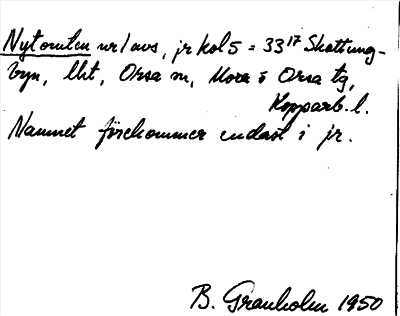 Nytomten nr 1 avs, jr kol 5 = 33¹⁷ Skattung-
byn, lht, Orsa sn, Mora o Orsa tg,
Kopparb. l.
Namnet förekommer endast i jr.
B. Granholm 1950